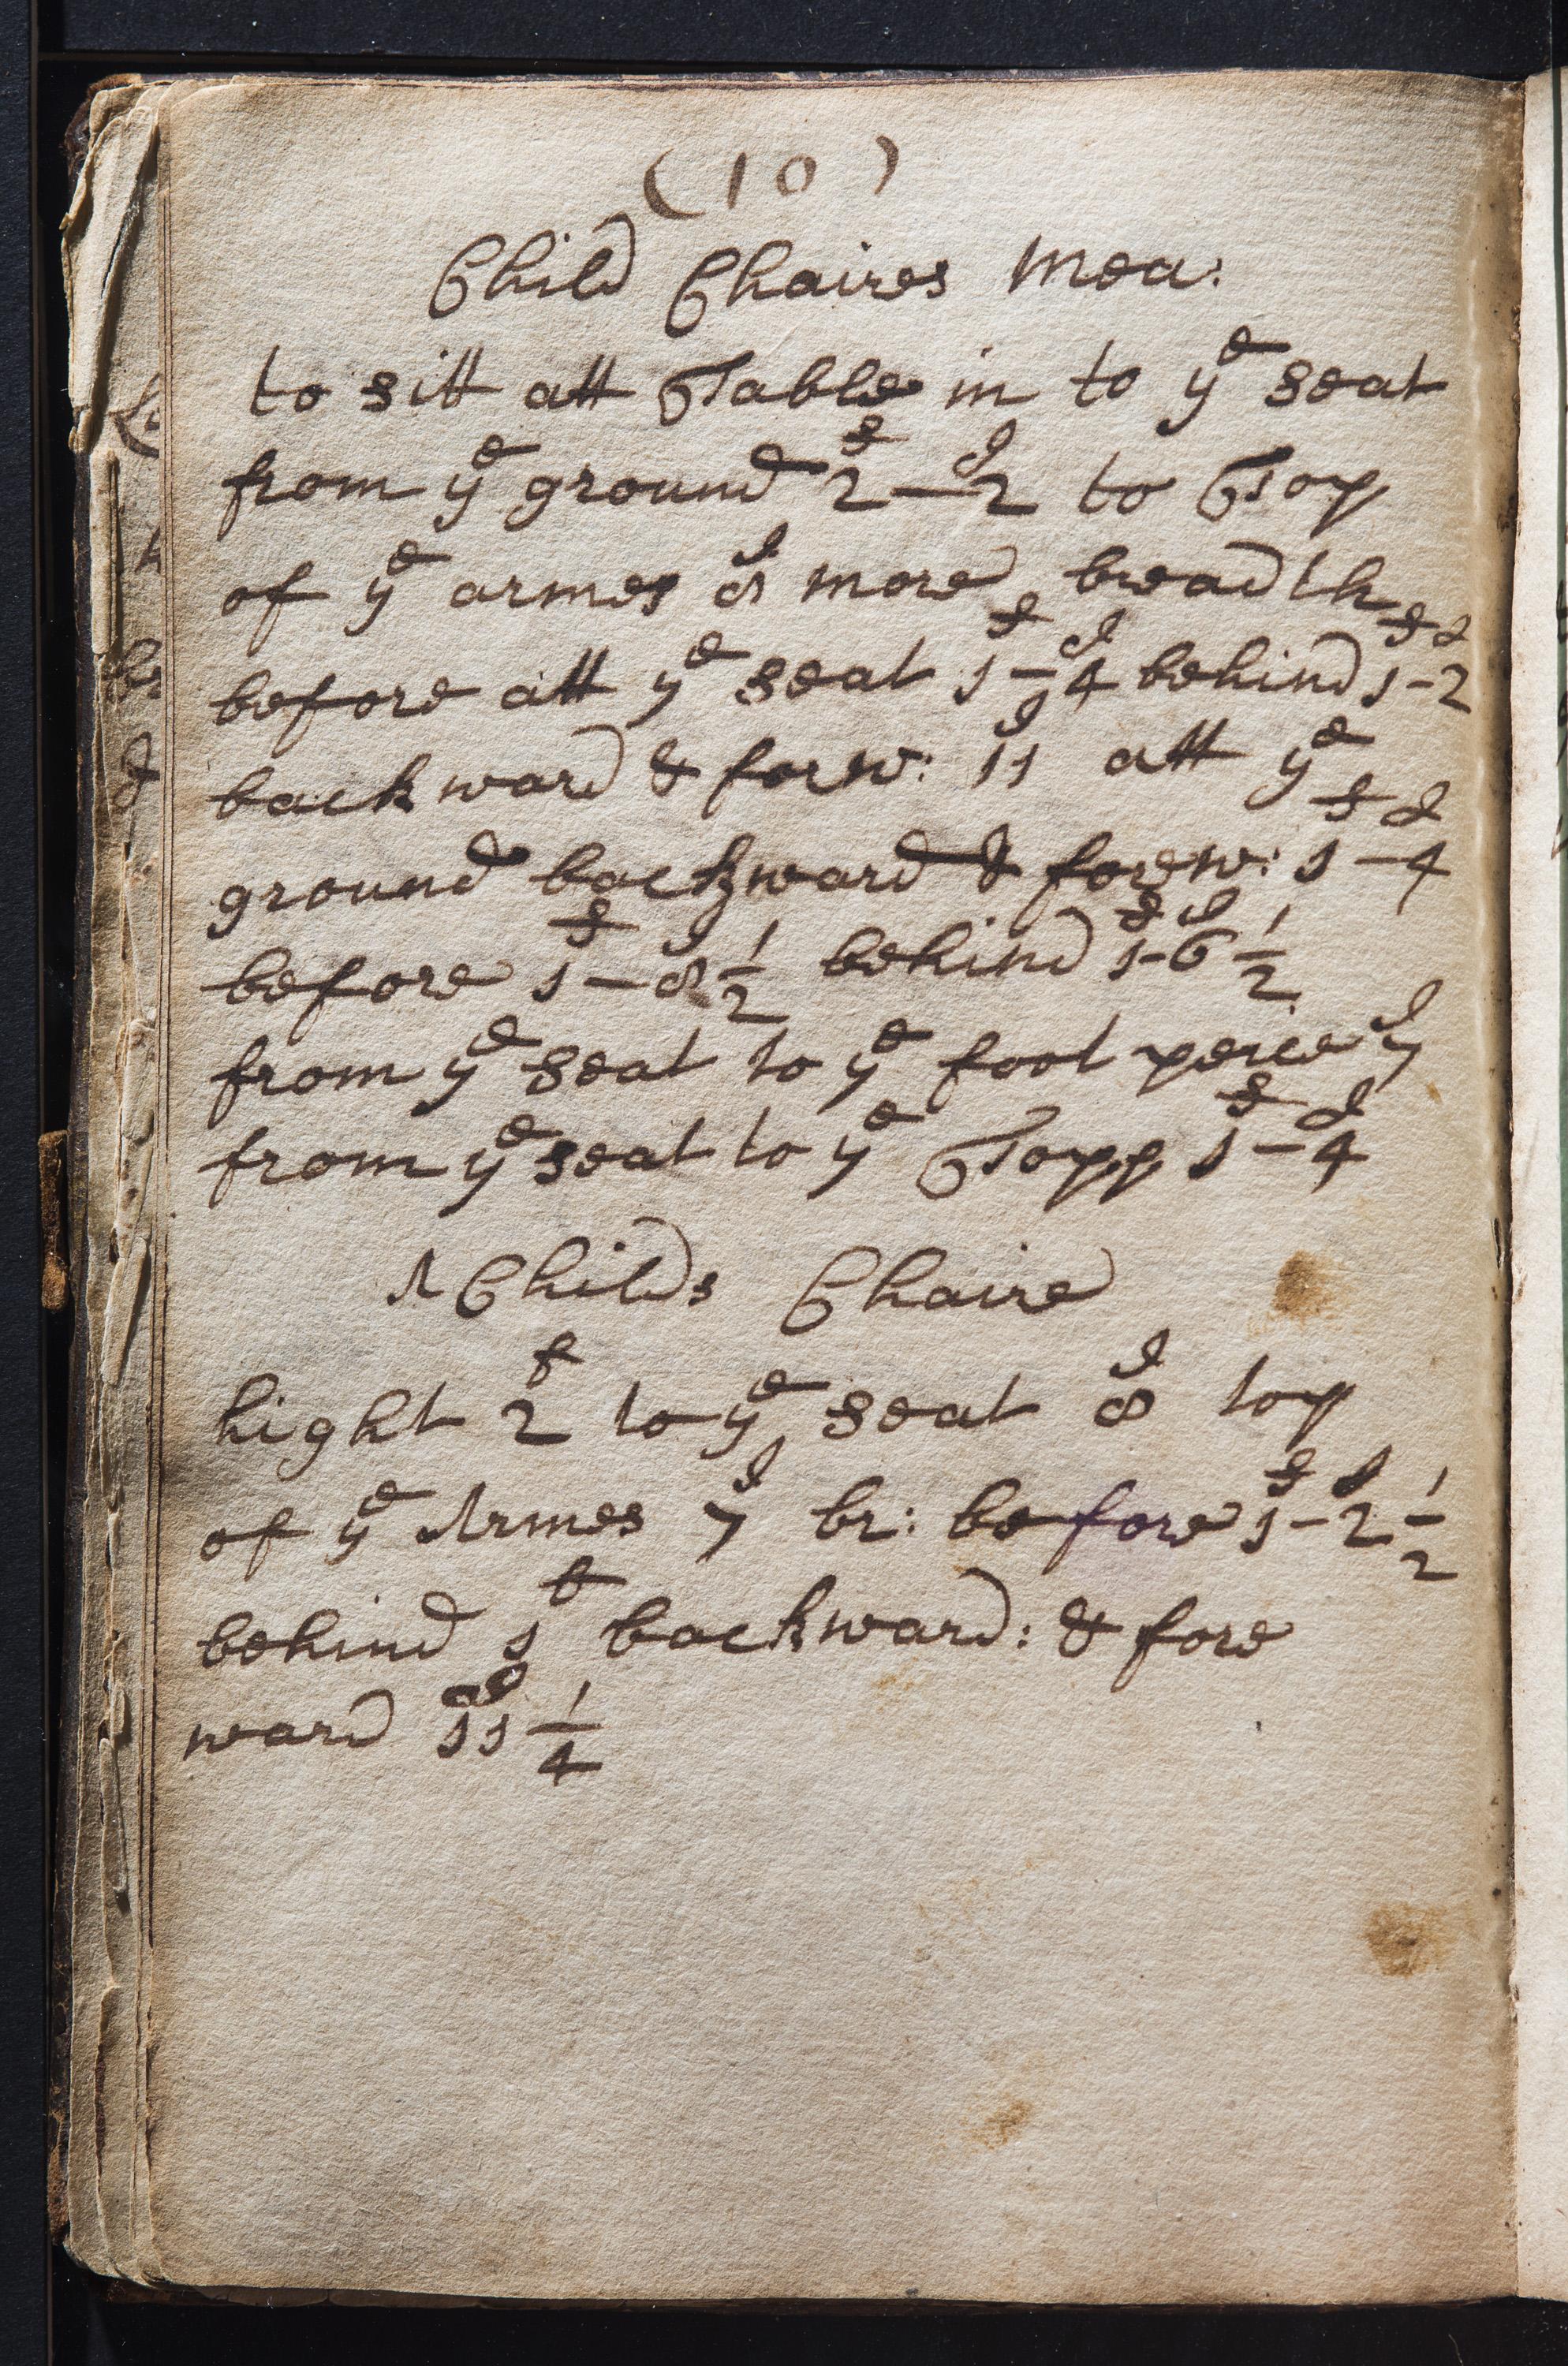 (10)
Child Chaires Mea:
to sitt att Table in to yᵉ seat
from yᵉ ground 2ᶠ—2ᴵ to Top
of yᵉ armes 8ᴵ more breadth
before att yᵉ seat 1ᶠ-4ᴵ behind 1ᶠ-2ᴵ
backward & forw: 11ᴵ att yᵉ
ground backward & forew: 1ᶠ-4ᴵ
before 1ᶠ-8ᴵ½ behind 1ᶠ-6ᴵ½
from yᵉ seat to yᵉ foot peice 7ᴵ
from yᵉ seat to yᵉ Topp 1ᶠ-4ᴵ
A Childs Chaire
hight 2ᶠ to yᵉ seat 8ᴵ top
of yᵉ Armes 7ᴵ br: before 1ᶠ-2ᴵ½
behind 1ᶠ backward: & fore
ward 11ᴵ¼